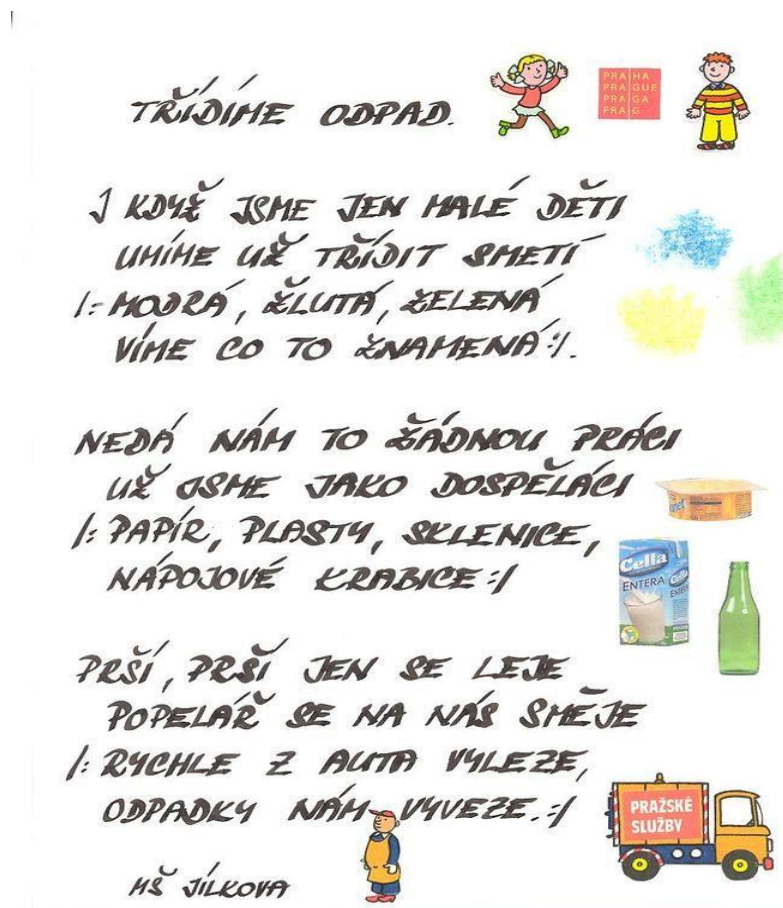 TŘÍDÍME ODPAD.
PRAHA
PRAGUE
PRAGA
PRAG
I KDYŽ JSME JEN MALÉ DĚTI
UMÍME UŽ TŘÍDIT SMETÍ
/:MODRÁ, ŽLUTÁ, ZELENÁ
VÍME CO TO ZNAMENÁ:/.
NEDÁ NÁM TO ŽÁDNOU PRÁCI
UŽ JSME JAKO DOSPĚLÁCI
/: PAPÍR, PLASTY, SKLENICE,
NÁPOJOVÉ KRABICE:/
Cella
ENTERA
PRŠÍ, PRŠÍ JEN SE LEJE
POPELÁŘ SE NA NÁS SMĚJE
/: RYCHLE Z AUTA VYLEZE,
ODPADKY NÁM VYVEZE.:/
PRAŽSKÉ
SLUŽBY
MŠ JÍLKOVA